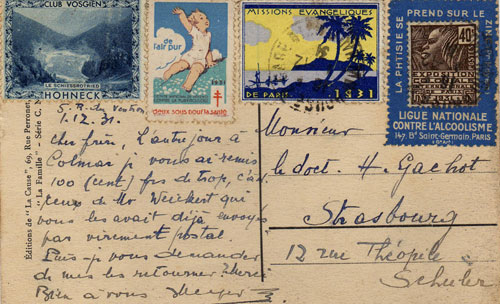 CLUB VOSGIEN
LE SCHIESSROTHRIED
HOHNECK
de
l'air pur
1931
deux sous pour la santé
MISSIONS EVANGELIQUES
DE PARIS 1931
LA PHTISIE SE PREND SUR LE ZINC
40
EXPOSITION
LIGUE NATIONALE
CONTRE L'ALCOOLISME
147, Bd Saint-Germain, PARIS
5. R. du
1.12.31.
Cher frère, l'autre jour à
Colmar je vous ai remis
100 (cent) frs de trop,
ceux de Mr Weickert qui
vous les avait déjà envoyés
par virement postal.
Puis-je vous demander
de me les retourner? Merci
Bien à vous Meyer
Editions de "La Cause", 69, Rue Perronet, N
"La Famille" - Série C, N
Monsieur
le doct. H. Gachot
Strasbourg
12 rue Théophile
Schuler